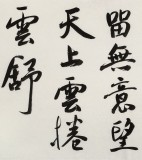 留無意望
天上雲捲
雲舒